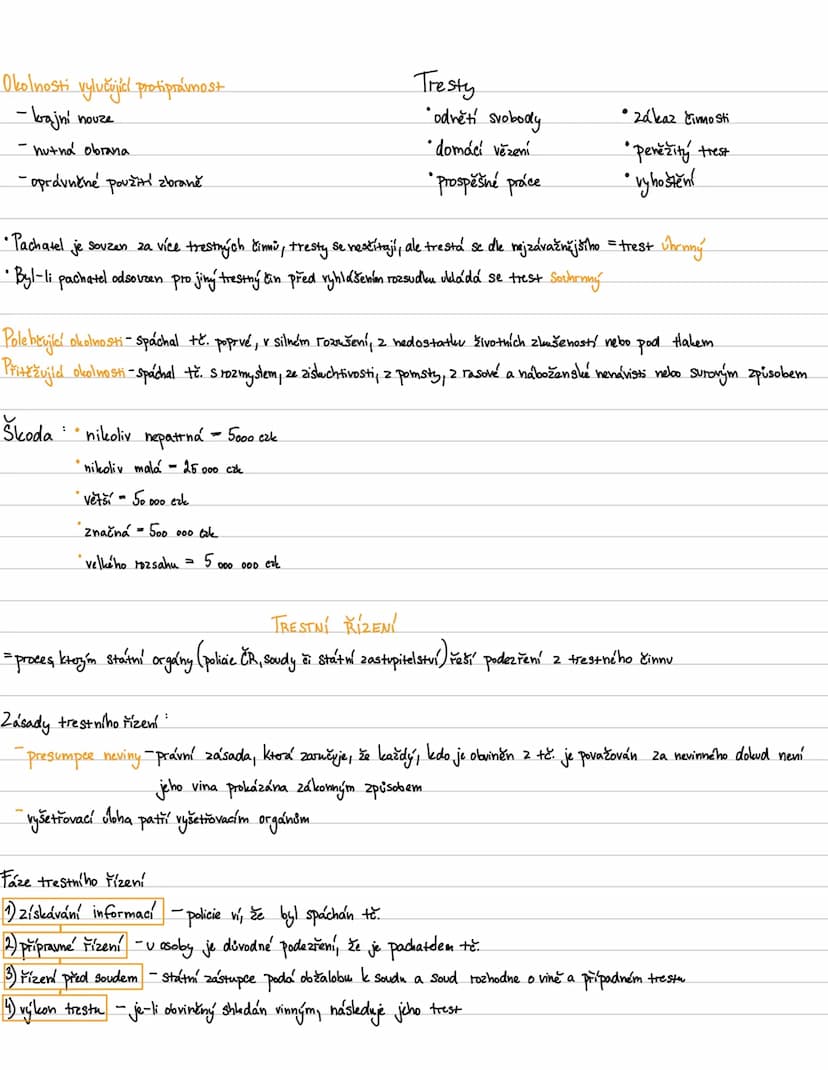 Okolnosti vylučující protiprávnost
- krajní nouze
- nutná obrana
- oprávněné použití zbraně
Tresty
• odnětí svobody
• domácí vězení
• prospěšné práce
• zákaz činnosti
• peněžitý trest
• vyhoštění
• Pachatel je souzen za více trestných činů, tresty se nesčítají, ale trestá se dle nejzávažnějšího = trest úhrnný
• Byl-li pachatel odsouzen pro jiný trestný čin před vyhlášením rozsudku ukládá se trest Souhrnný
Polehčující okolnosti - spáchal tč. poprvé, v silném rozrušení, z nedostatku životních zkušeností nebo pod tlakem
Přitěžující okolnosti - spáchal tč. s rozmyslem, ze ziskuchtivosti, z pomsty, z rasové a náboženské nenávisti nebo surovým způsobem
Škoda : • nikoliv nepatrná - 5000 czk
• nikoliv malá - 25 000 czk
• větší - 50 000 czk
• značná - 500 000 czk
• velkého rozsahu = 5 000 000 czk
TRESTNÍ ŘÍZENÍ
= proces, kterým státní orgány (policie ČR, soudy či státní zastupitelství) řeší podezření z trestného činnu
Zásady trestního řízení :
- presumpce neviny - právní zásada, která zaručuje, že každý, kdo je obviněn z tč. je považován za nevinného dokud není
jeho vina prokázána zákonným způsobem
- vyšetřovací úloha patří vyšetřovacím orgánům
Fáze trestního řízení
1) získávání informací - policie ví, že byl spáchán tč.
2) přípravné řízení - u osoby je důvodné podezření, že je pachatelem tč.
3) řízení před soudem - státní zástupce podá obžalobu k soudu a soud rozhodne o vině a případném trestu
4) výkon trestu - je-li obviněný shledán vinným, následuje jeho trest